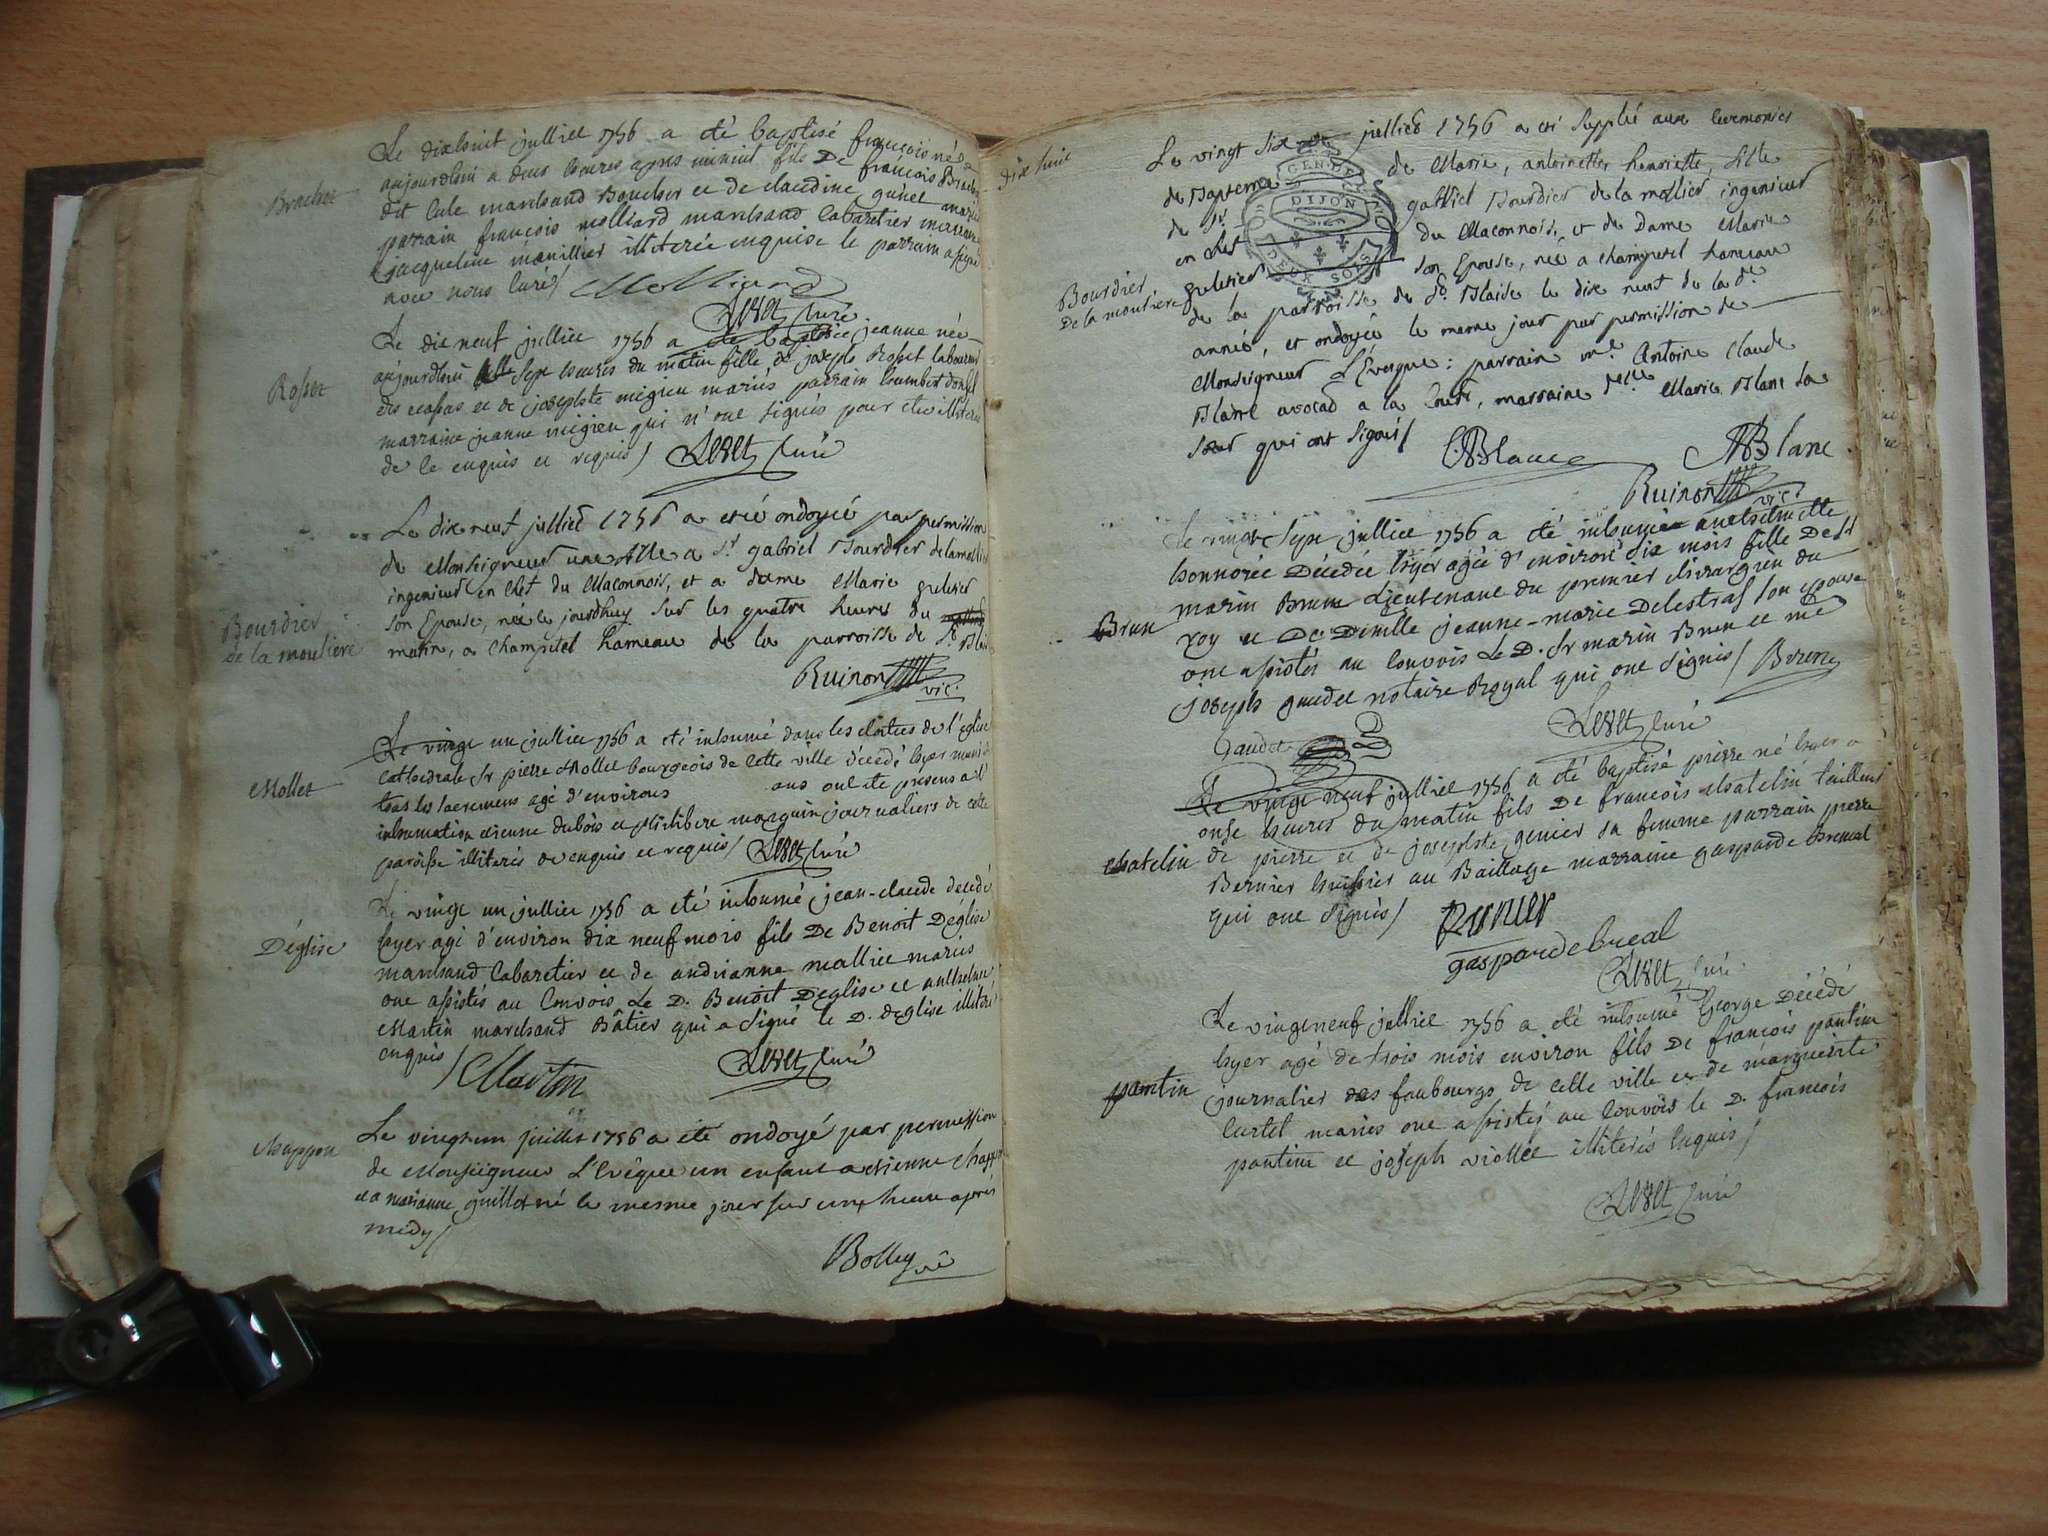 Le dixhuit julliet 1756 a été baptisé françois né
aujourdhui a deux heures apres minuit fils De françois Brachet
dit marchand Boucher et de claudine mariés
Brachet
parrain françois molliard marchand Cabaretier marraine
jacqueline illiterée enquise le parrain a signé
avec nous Curé/
Molliard
Curé
Le dix neuf julliet 1756 a été baptisée jeanne née
aujourdhui Sept heures du matin fille de joseph Rosset laboureur
Rosset
et de josephte migieu mariés parrain humbert
marraine jeanne migieu qui n'ont signés pour etre illiterés
de ce enquis et requis/
Curé
Le dix neuf julliet 1756 a eté ondoyé par permission
de Monseigneur une fille a Sr. gabriel Bourdier delamollier
ingenieur en chef du Maconnois, et a dame Marie
Son Epouse, née le jourdhuy Sur les quatre heures du
Bourdier
de la moulière
matin, a Champitel hameau de la parroisse de St. Blaise
Ruinon
vic.
Le vingt un julliet 1756 a eté inhumé dans les cloitres de l'eglise
cathedrale Sr pierre Mollet bourgeois de cette ville décédé hyer muni de
Mollet
tous les sacremens agé d'environ ans ont ete présens a l'
inhumation etienne dubois et philibert journaliers de cette
paroisse illiterés de enquis et requis/
Curé
Le vingt un julliet 1756 a eté inhumé jean-claude decédé
hyer agé d'environ dix neuf mois fils De Benoit Déglise
Déglise
marchand Cabaretier et de andrianne malliet mariés
ont assistés au Convois Le D. Benoit Déglise et anthelme
Martin marchand Bâtier qui a Signé le D. déglise illiteré
enquis/
Martin
Curé
Chappon
Le vingt un juillet 1756 a été ondoyé par permission
de Monseigneur L'Evêque un enfant a etienne Chappon
et a marianne guillot né le mesme jour sur une heure après
midy/
Bolley
dix huit
Le vingt six julliet 1756 a eté Supplié aux Ceremonies
de Bapteme de Marie, antoinette, henriette, fille
de Sr. gabriel Bourdier de la mollier ingenieur
en Chef du Maconnois, et de Dame Marie
son Epouse, née a champitel hameau
Bourdier
De la moulière
de la parroisse de St. Blaise le dix neuf de la de.
année, et ondoyée le meme jour par permission de
Monseigneur L'Evesque: parrain mr. Antoine Claude
Blanc avocat a la Cour, marraine delle Marie Blanc Sa
Sœur qui ont Signés/
Blanc
Blanc
Ruinon
vic.
Le vingt Sept julliet 1756 a été inhumée anthelmette
honnorée Décédée hyer agée d'environ Six mois fille De Sr
marin Brun Lieutenant du premier chirurgien du
Brun
roy et De Demlle jeanne-marie Delestras son epouse
ont assistés au Convois Le D. Sr marin Brun et me
joseph gaudet notaire Royal qui ont Signés/
Brun
Gaudet
Curé
Le vingt neuf julliet 1756 a été baptisé pierre né hyer a
onse heures du matin fils De francois chatelin tailleur
Chatelin
de pierre et de josephte genier sa femme parrain pierre
Bernier huissier au Baillage marraine gasparde Breuat
qui ont Signés/
Bernier
gasparde breal
Curé
Le vingt neuf julliet 1756 a été inhumé George Décédé
hyer agé de trois mois environ fils De francois pantin
pantin
journalier des faubourgs de cette ville et de marguerite
Curtet mariés ont assistés au Convois le D. francois
pantin et joseph viollet illiterés Enquis/
Curé
GEN DE
DIJON
DEUX SOLS